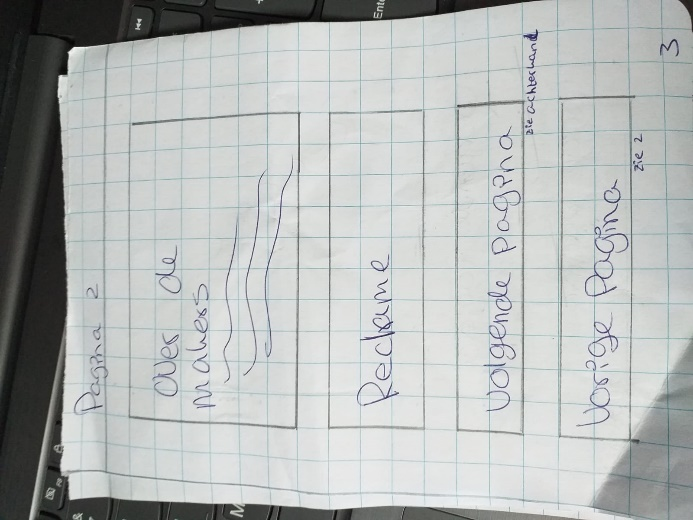 Pagina 2
Over de
makers
Reclame
volgende pagina
zie achterkant
Vorige Pagina
zie 2
3
Ente
M